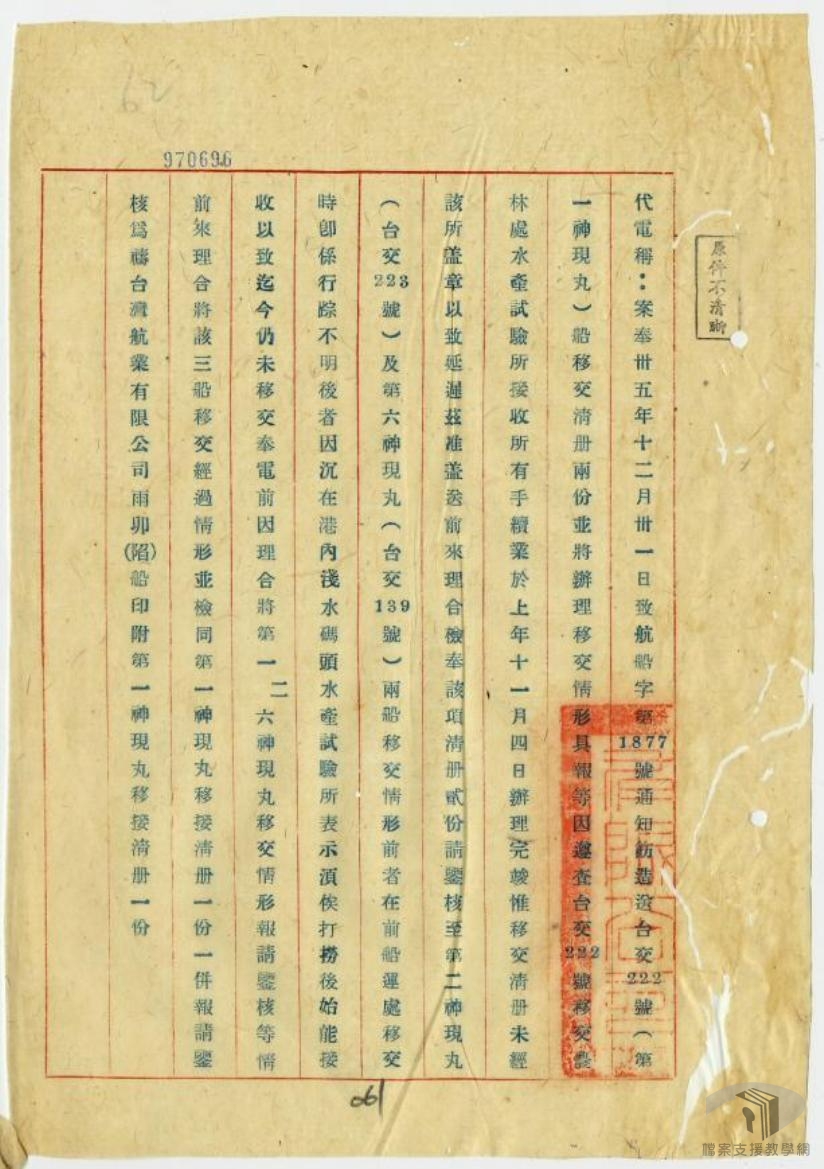 970696
原件不清晰
代電稱：案奉卅五年十二月卅一日致航船字第1877號通知飭造送台交222號（第
一神現丸）船移交清册兩份並將辦理移交情形具報等因遵查台交222號移交農
林處水產試驗所接收所有手續業於上年十一月四日辦理完竣惟移交清册未經
該所盖章以致延遲茲准盖送前來理合檢奉該項清册貳份請鑒核至第二神現丸
（台交223號）及第六神現丸（台交139號）兩船移交情形前者在前船運處移交
時卽係行踪不明後者因沉在港內淺水碼頭水產試驗所表示須俟打撈後始能接
收以致迄今仍未移交奉電前因理合將第一二六神現丸移交情形報請鑒核等情
前來理合將該三船移交經過情形並檢同第一神現丸移接清册一份一併報請鑒
核爲禱台灣航業有限公司雨卯(陷)船印附第一神現丸移接清册一份
061
檔案支援教學網